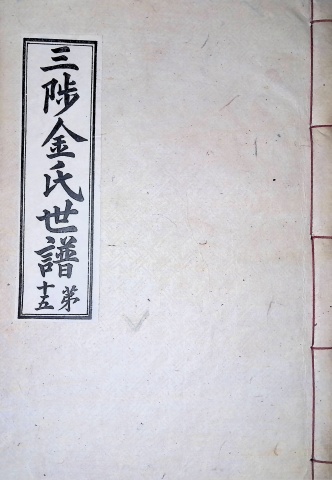 三陟金氏世譜
第十五